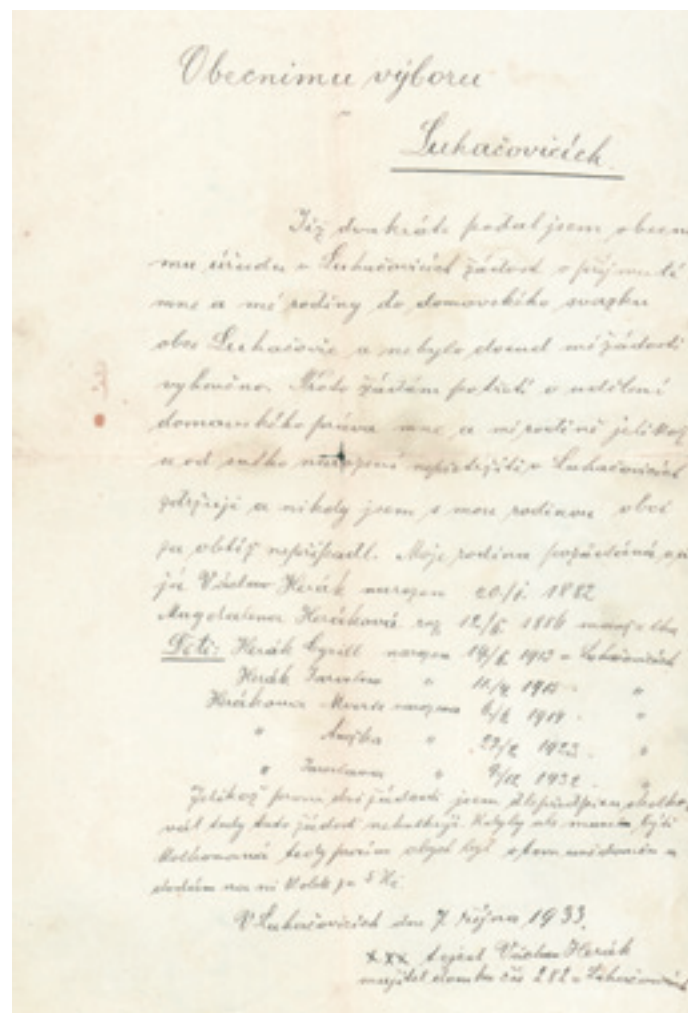 Obecnímu výboru
Luhačovicích.
Již dvakráte podal jsem obecní-
mu úřadu v Luhačovicích žádost o přijmutí
mne a mé rodiny do domovského svazku
obce Luhačovic a nebylo dosud mé žádosti
vyhověno. Proto žádám potřetí o udělení
domovského práva mne a mé rodině jelikož
se od narození nepřetržitě v Luhačovicích
zdržuji a nikdy jsem s mou rodinou obci
za obtíž nepřipadl. Moje rodina
já Václav Herák narozen 1882
Magdalena Heráková roz 1886 manželka
Děti: Herák Cyrill narozen 1913 v Luhačovicích
Herák Jaroslav " "
Heráková narozena 1919 "
" Anežka " 1923 "
" Jaroslava " 1932 "
Jelikož žádosti jsem
tedy tuto žádost nekolkuji. Kdyby ale musela býti
kolkovaná tedy prosím abych byl o tom uvědoměn a
dodám na ni kolek za 5 Kč.
V Luhačovicích dne 7. října 1933.
xxx Václav Herák
majitel domku čís 282 v Luhačovicích